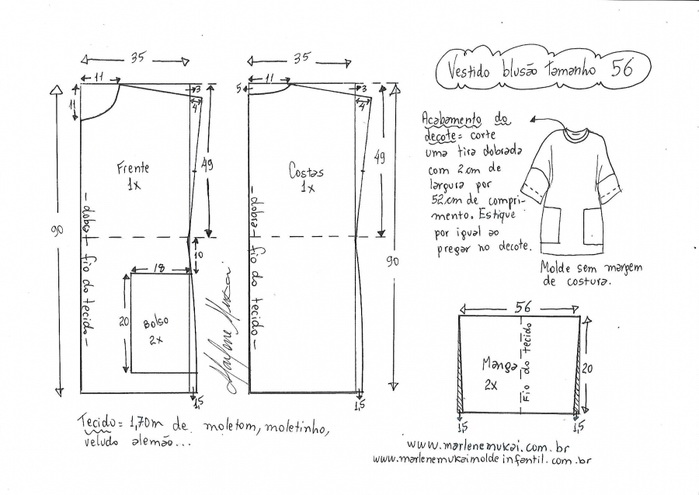 Vestido blusão tamanho 56
35
35
11
11
3
4
11
5
3
4
Frente
1x
49
Costas
1x
49
90
90
- dobra - fio do tecido -
- dobra - fio do tecido -
10
18
20
Bolso
2x
1,5
1,5
Marlene Mukai
Tecido = 1,70m de moletom, moletinho,
veludo alemão...
Acabamento do
decote = corte
uma tira dobrada
com 2 cm de
largura por
52 cm de compri-
mento. Estique
por igual ao
pregar no decote.
Molde sem margem
de costura.
56
Manga
2x
Fio do tecido
20
1,5
1,5
www.marlenemukai.com.br
www.marlenemukaimoldeinfantil.com.br